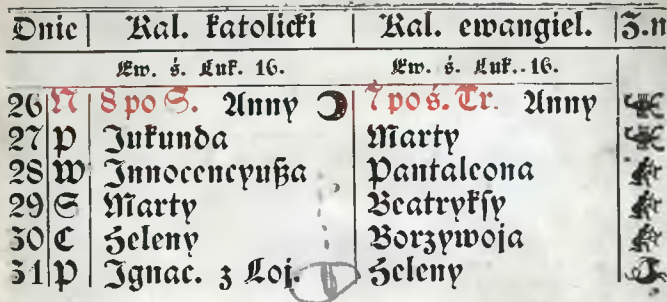 Dnie | Kal. katolicki | Kal. ewangiel. | Z.n
Ew. ś. Łuk. 16. Ew. ś. Łuk. 16.
26 N 8 po S. Anny 7 po ś. Tr. Anny
27 P Jukunda Marty
28 W Innocencyußa Pantaleona
29 S Marty Beatrykſy
30 C Heleny Borzywoja
31 P Ignac. z Loj. Heleny